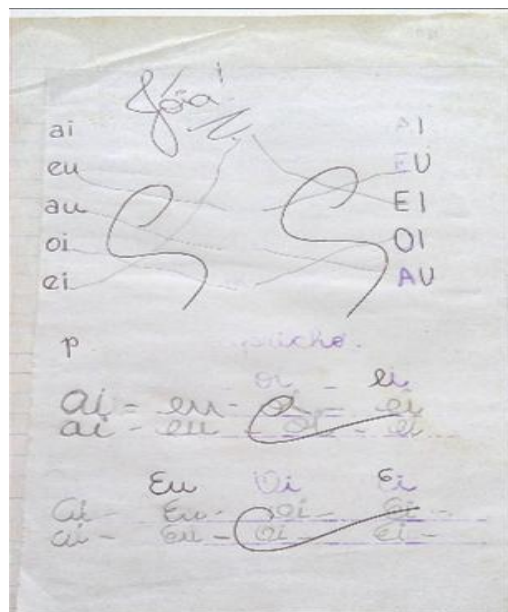 Jóia!
ai AI
eu EU
au EI
oi OI
ei AU
p
oi - ei
ai - eu - oi - ei
ai - eu - oi - ei
Eu Oi Ei
ai - Eu - oi - Ei -
ai - eu - oi - ei -